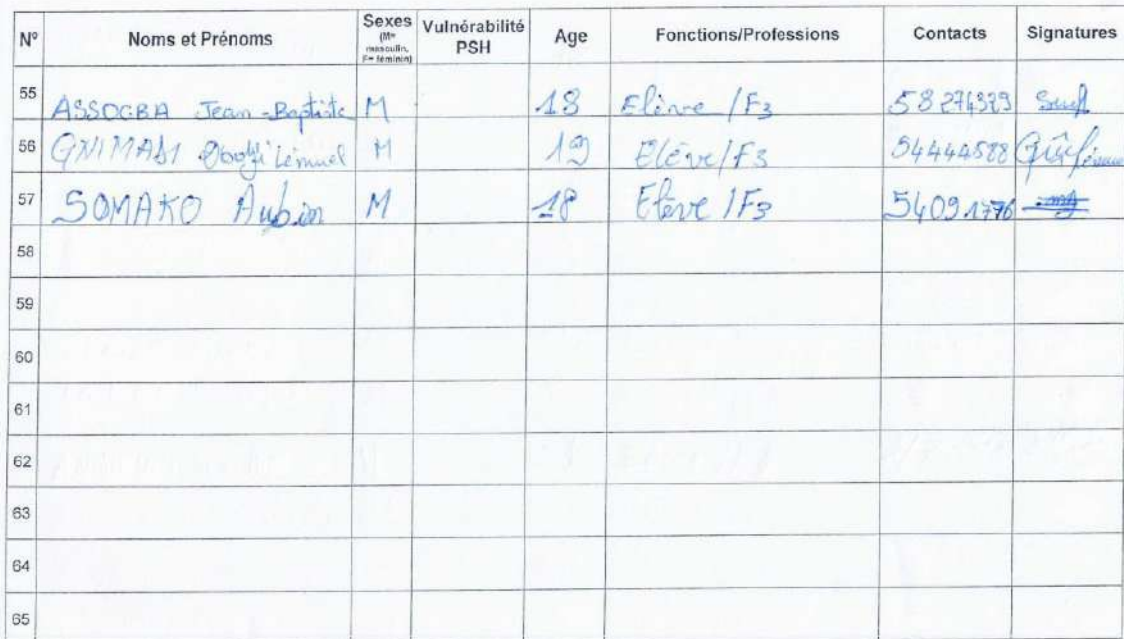 N° Noms et Prénoms Sexes (M= masculin, F= féminin) Vulnérabilité PSH Age Fonctions/Professions Contacts Signatures
55 ASSOGBA Jean-Baptiste M 18 Elève /F3 58274329
56 GNIMADI Lémuel M 19 Elève/F3 54444588
57 SOMAKO Aubin M 18 Elève /F3 54091776
58
59
60
61
62
63
64
65